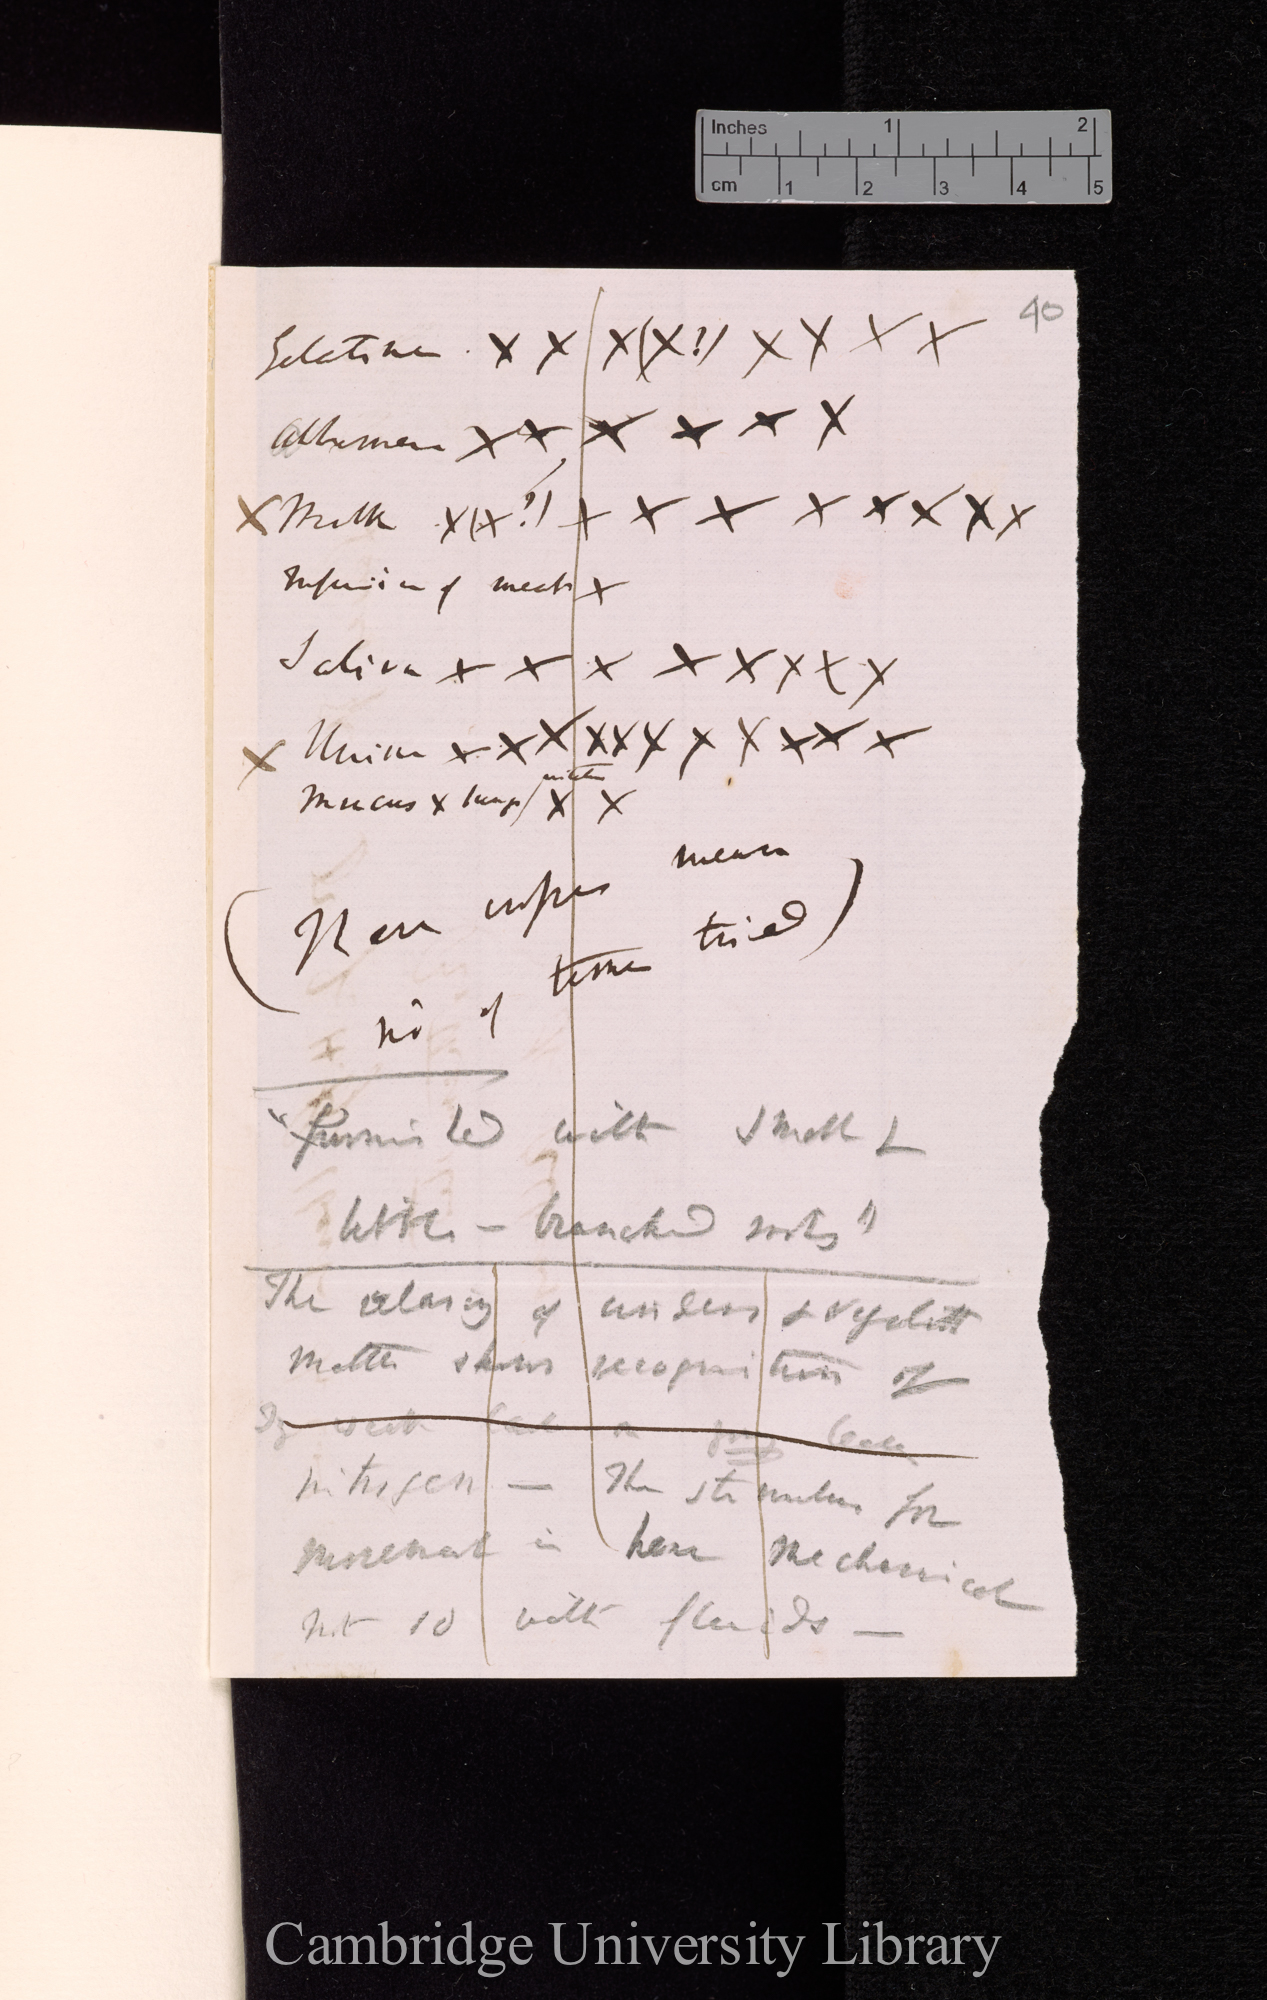 Inches 1 2
cm 1 2 3 4 5
40
Gelatine x x x (x?) x x x x
Albumen x x x x x x
x Milk x (x?) x x x x x x x x
Infusion of meat x
Saliva x x x x x x x x
x Urine x x x x x x x x x x x
Mucus x lungs x x
(These crosses mean
no of times tried)
"furnished with small &
little - branched roots"
The closing of cinders & vegetable
matter shows recognition of
nitrogen — The stimulus for
movement is here mechanical
not so with fluids —
Cambridge University Library